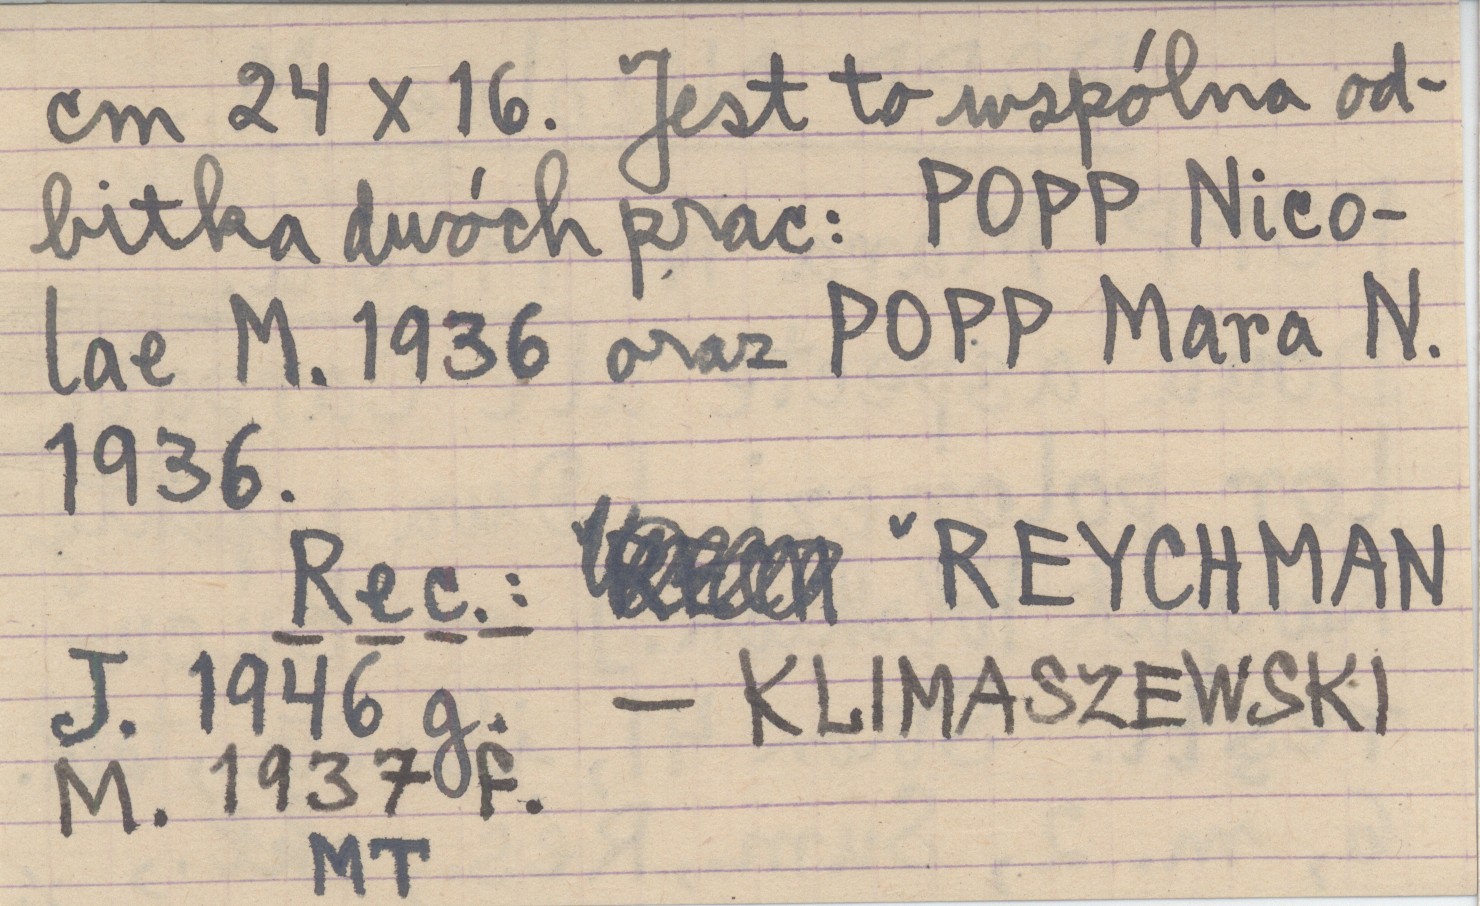 cm 24 x 16. Jest to wspólna od-
bitka dwóch prac: POPP Nico-
lae M. 1936 oraz POPP Mara N.
1936.
Rec.: REYCHMAN
J. 1946 g. — KLIMASZEWSKI
M. 1937 f.
MT